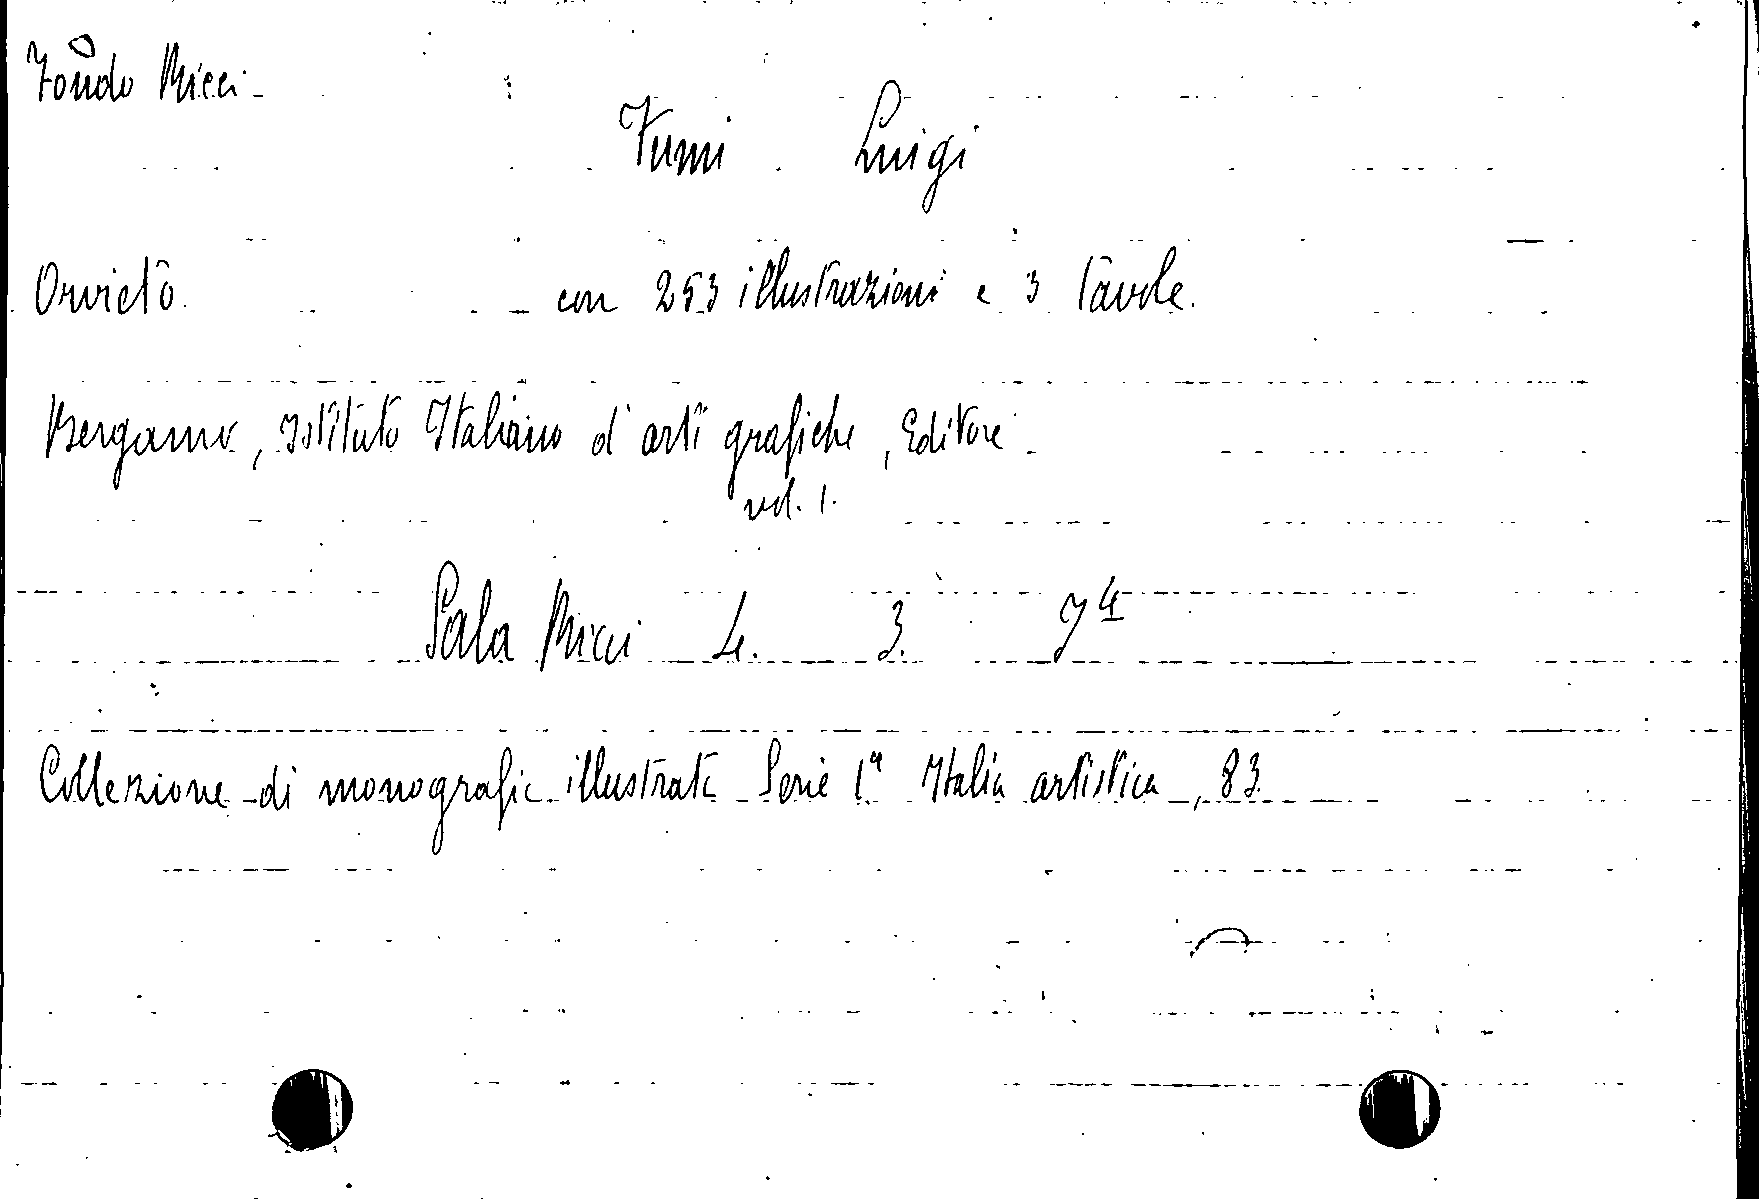 Fondo Ricci
Fumi Luigi
Orvieto con 253 illustrazioni e 3 tavole.
Bergamo, Istituto Italiano d'arti grafiche, Editore
vol. 1.
Sala Ricci 4. 3. 7⁴
Collezione di monografie illustrate Serie 1ª Italia artistica, 83